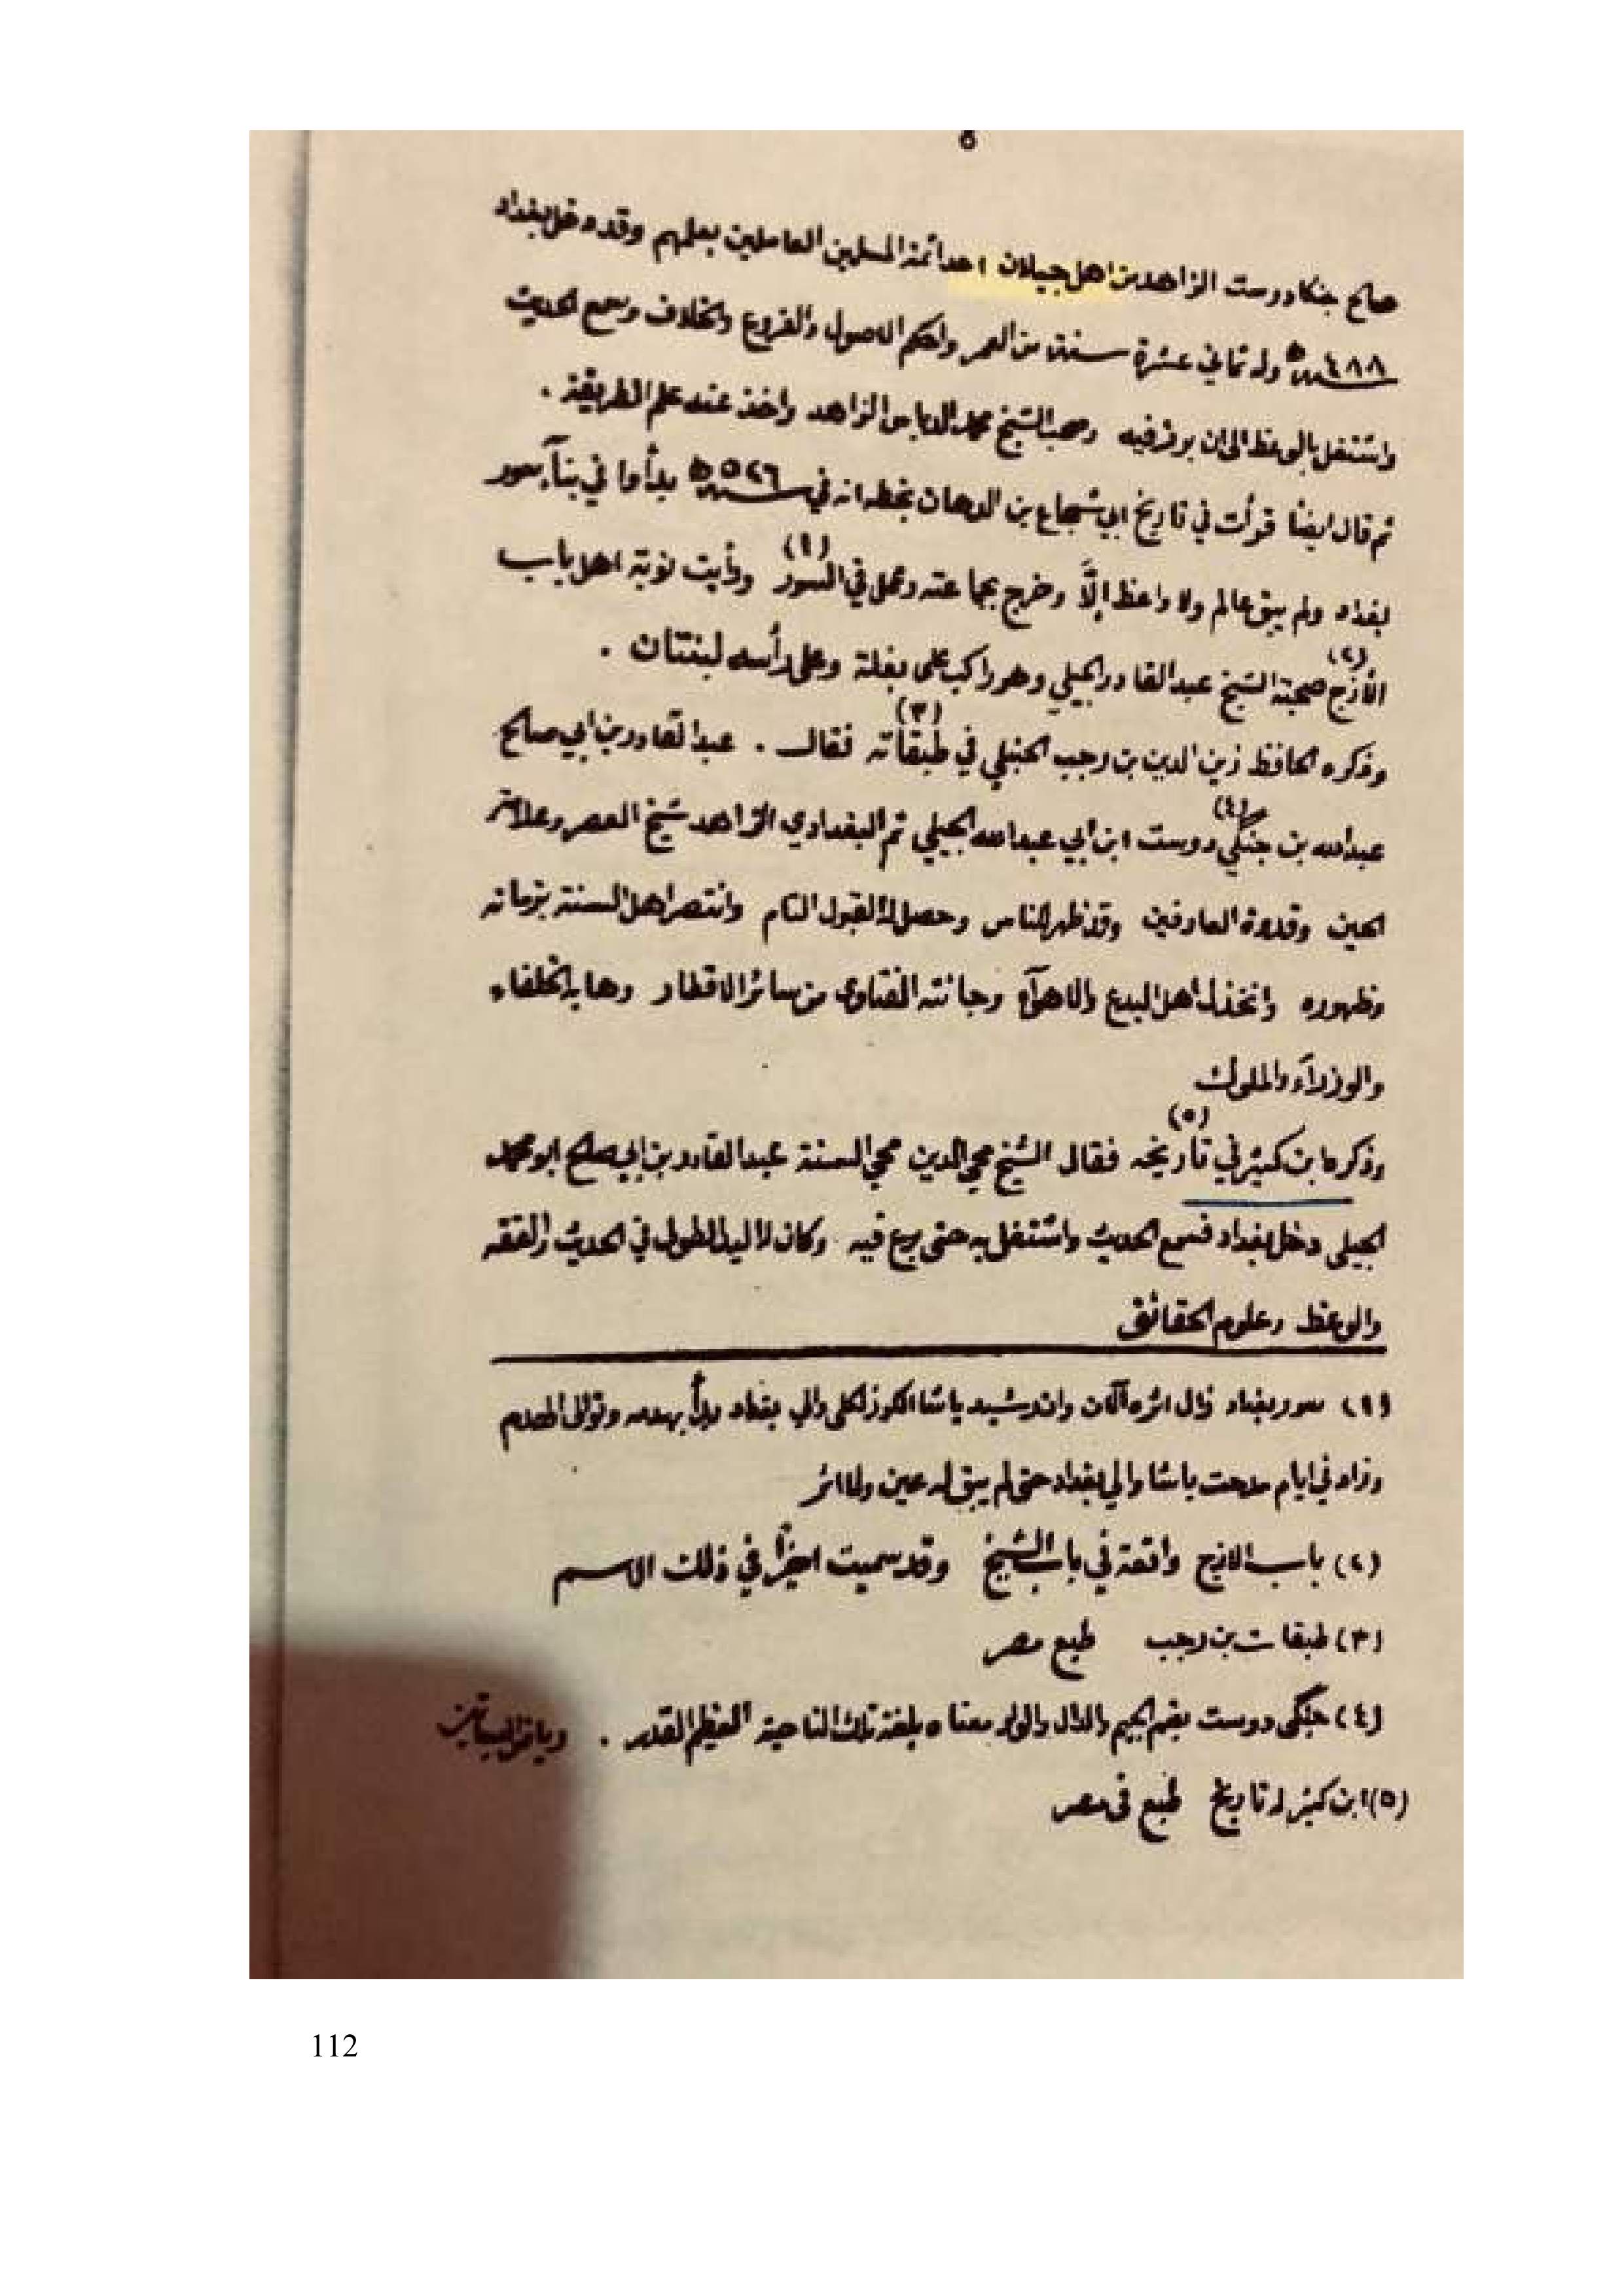 ٥
صالح جنكادوست الزاهد من اهل جيلان احد ائمة المسلمين العاملين بعلمهم وقد دخل بغداد
سنة ٤٨٨ ه وله ثماني عشرة سنة من العمر واحكم الاصول والفروع والخلاف وسمع الحديث
واشتغل بالوعظ الى ان برز فيه وصحب الشيخ محمد الدباس الزاهد واخذ عنه علم الطريقة .
ثم قال ايضا قرأت في تاريخ ابي شجاع بن الدهان بخطه انه في سنة ٥٢٦ ه بدأوا في بنآء سور
بغداد ولم يبق عالم ولا واعظ إلَّا وخرج بجماعته وعمل في السور (١) ورأيت نوبة اهل باب
الأزج (٢) صحبة الشيخ عبد القادر الجيلي وهو راكب على بغلة وعلى رأسه لبنتان .
وذكره الحافظ زين الدين بن رجب الحنبلي في طبقاته (٣) فقال . عبد القادر بن ابي صالح
عبدالله بن جنكي (٤) دوست ابن ابي عبدالله الجيلي ثم البغدادي الزاهد شيخ العصر وعلامة
الحين وقدوة العارفين وقد ظهر للناس وحصل له القبول التام وانتصر اهل السنة بزمانه
وظهوره وانخذل اهل البدع والاهوآء وجائته الفتاوى من سائر الاقطار وهابه الخلفاء
والوزرآء والملوك
وذكره ابن كثير في تاريخه (٥) فقال الشيخ محي الدين محي السنة عبد القادر بن ابي صالح ابو محمد
الجيلى دخل بغداد فسمع الحديث واشتغل به حتى برع فيه وكان له اليد الطولى في الحديث والفقه
والوعظ وعلوم الحقائق
(١) سور بغداد زال اثره الآن وان رشيد باشا الكوزلكلي والي بغداد بدأ بهدمه وتوالى الهدم
وزاد في ايام مدحت باشا والي بغداد حتى لم يبق له عين ولا اثر
(٢) باب الازج واقعة في باب الشيخ وقد سميت اخيرًا في ذلك الاسم
(٣) طبقات بن رجب طبع مصر
(٤) جنكي دوست بضم الجيم والدال والواو معناه بلغة تلك الناحية العظيم القدر .
(٥) ابن كثير له تاريخ طبع في مصر
112